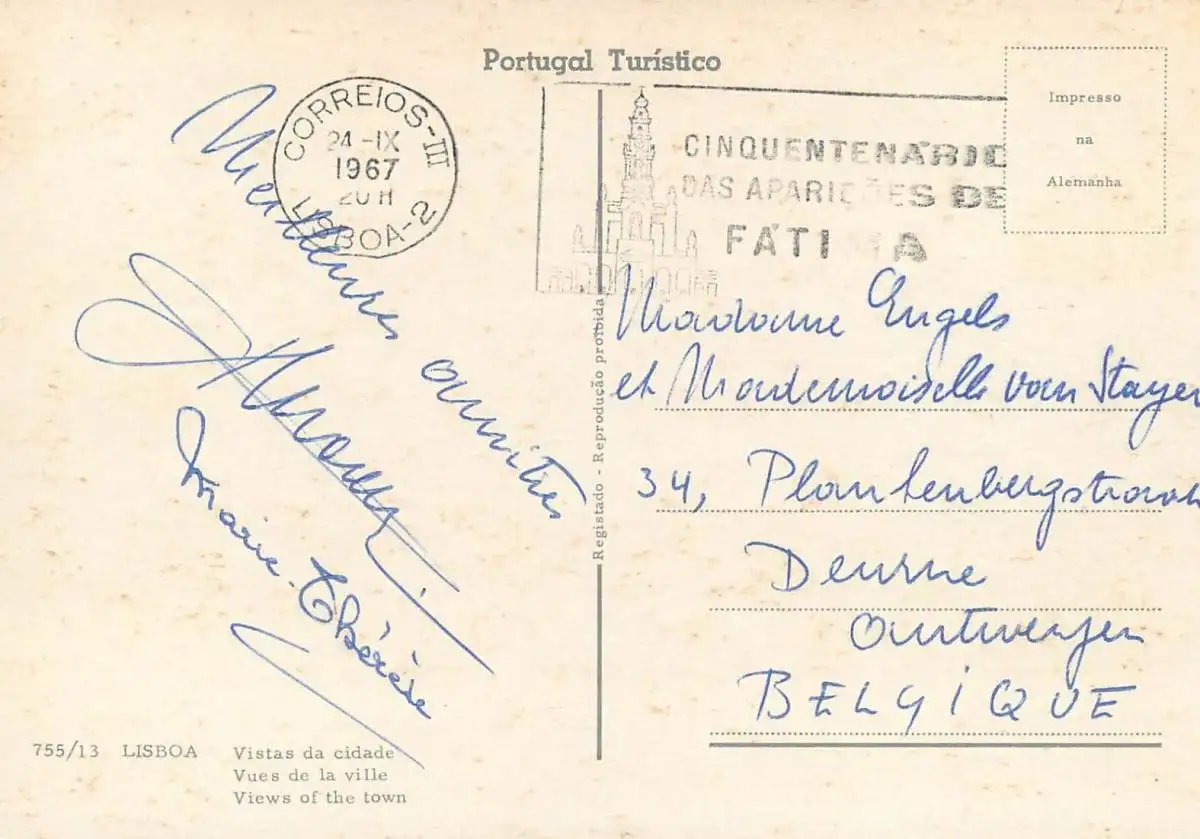 Portugal Turístico
CORREIOS-III
24-IX
1967
20H
LISBOA-2
CINQUENTENÁRIO
DAS APARIÇÕES DE
FÁTIMA
Impresso
na
Alemanha
Meilleures amitiés
Marie-Thérèse
Registado - Reprodução proibida
Madame Engels
et Mademoiselle van Stayen
34, Plantenbergstraat
Deurne
Antwerpen
BELGIQUE
755/13 LISBOA Vistas da cidade
Vues de la ville
Views of the town